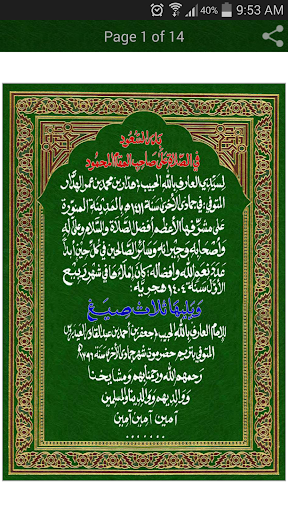 40% 9:53 AM
Page 1 of 14
في الصلاة على صاحب المقام المحمود
لسيدي العارف بالله الحبيب هدار بن محمد بن عمر الهدار
المتوفى في جمادى الأخرى سنة بالمدينة المنورة
على مشرفها الأعظم أفضل الصلاة والسلام وعلى آله
وأصحابه وجيرانه وسائر الصالحين في كل حين أبدا
عدد نعم الله وأفضاله كان إملاءها في شهر ربيع
الأول سنة ١٤٠٤ هجرية
ويليها ثلاث صيغ
للإمام العارف بالله الحبيب جعفر بن أحمد بن عبد القادر العيدروس
المتوفى بتريم حضرموت شهر جمادى الأخرى سنة
رحمهم الله ورحمنا بهم ومشايخنا
ووالديهم ووالدينا والمسلمين
آمين آمين آمين